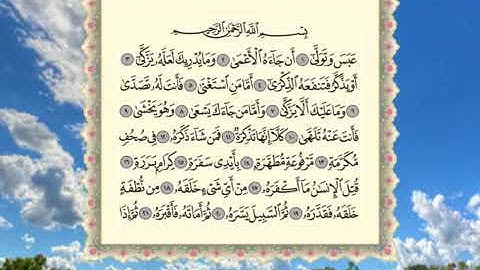 بِسْمِ اللَّهِ الرَّحْمَٰنِ الرَّحِيمِ
عَبَسَ وَتَوَلَّىٰٓ ١ أَن جَآءَهُ ٱلْأَعْمَىٰ ٢ وَمَا يُدْرِيكَ لَعَلَّهُۥ يَزَّكَّىٰٓ ٣
أَوْ يَذَّكَّرُ فَتَنفَعَهُ ٱلذِّكْرَىٰٓ ٤ أَمَّا مَنِ ٱسْتَغْنَىٰ ٥ فَأَنتَ لَهُۥ تَصَدَّىٰ
٦ وَمَا عَلَيْكَ أَلَّا يَزَّكَّىٰ ٧ وَأَمَّا مَن جَآءَكَ يَسْعَىٰ ٨ وَهُوَ يَخْشَىٰ ٩
فَأَنتَ عَنْهُ تَلَهَّىٰ ١٠ كَلَّآ إِنَّهَا تَذْكِرَةٌ ١١ فَمَن شَآءَ ذَكَرَهُۥ ١٢ فِى صُحُفٍ
مُّكَرَّمَةٍ ١٣ مَّرْفُوعَةٍ مُّطَهَّرَةٍۭ ١٤ بِأَيْدِى سَفَرَةٍ ١٥ كِرَامٍۭ بَرَرَةٍ ١٦
قُتِلَ ٱلْإِنسَٰنُ مَآ أَكْفَرَهُۥ ١٧ مِنْ أَىِّ شَىْءٍ خَلَقَهُۥ ١٨ مِن نُّطْفَةٍ
خَلَقَهُۥ فَقَدَّرَهُۥ ١٩ ثُمَّ ٱلسَّبِيلَ يَسَّرَهُۥ ٢٠ ثُمَّ أَمَاتَهُۥ فَأَقْبَرَهُۥ ٢١ ثُمَّ إِذَا